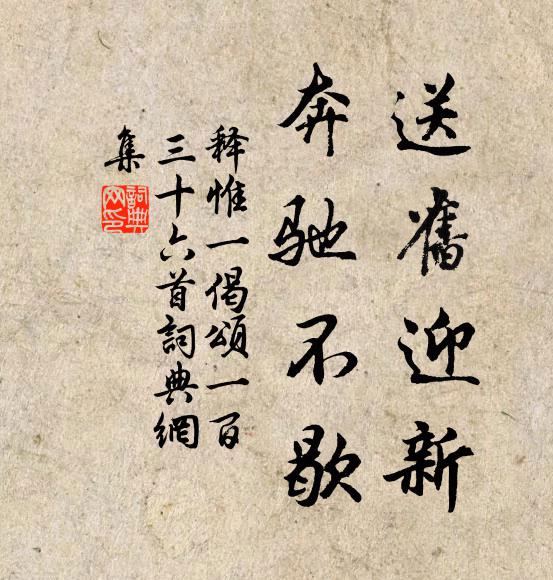 送舊迎新
奔驰不歇
释惟一偈頌一百
三十六首詞典網
集
詞典网印